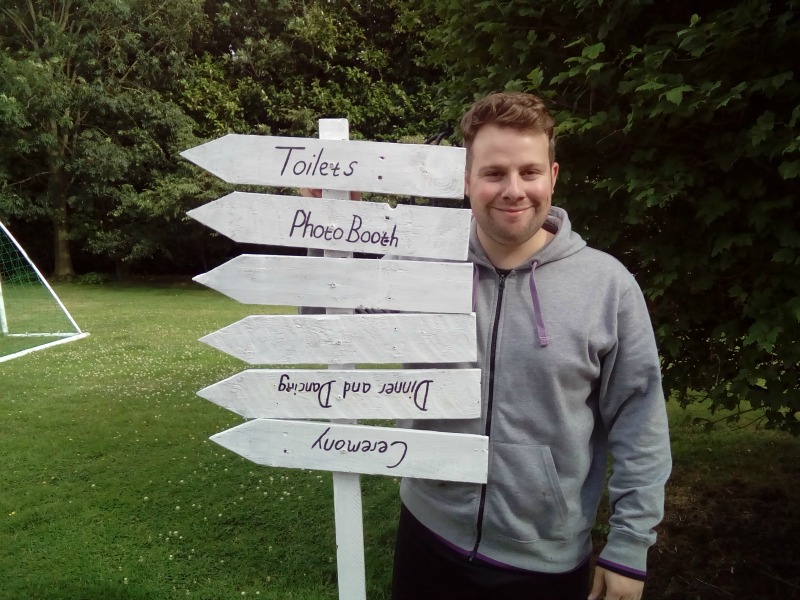 Toilets
Photo Booth
Dinner and Dancing
Ceremony